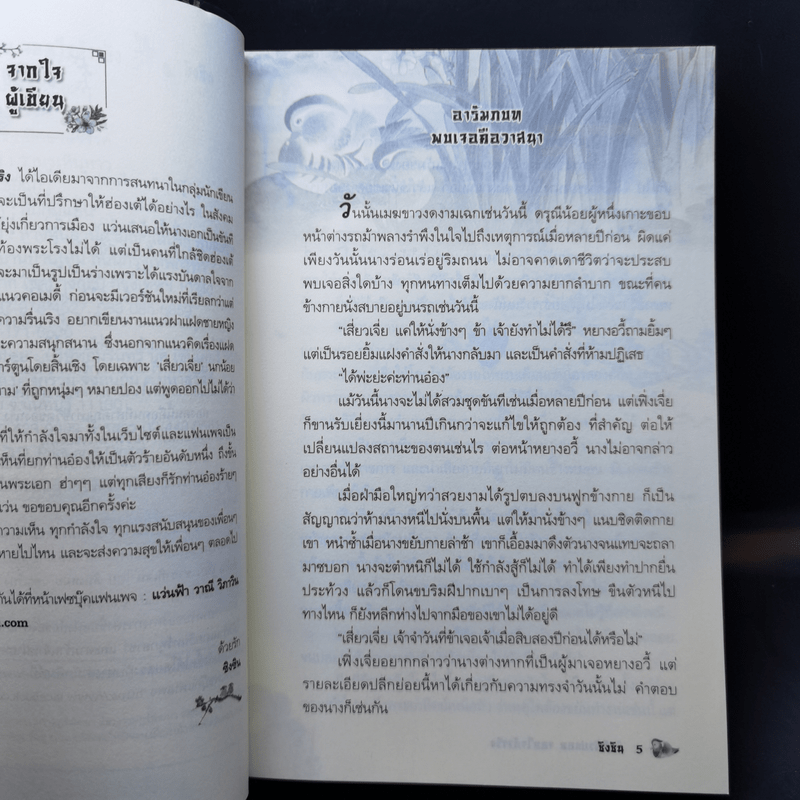 จากใจ
ผู้เขียน
ริง ได้ไอเดียมาจากการสนทนาในกลุ่มนักเขียน
จะเป็นที่ปรึกษาให้ฮ่องเต้ได้อย่างไร ในสังคม
ยุ่งเกี่ยวการเมือง แว่นเสนอให้นางเอกเป็นขันที
ท้องพระโรงไม่ได้ แต่เป็นคนที่ใกล้ชิดฮ่องเต้
จะมาเป็นรูปเป็นร่างเพราะได้แรงบันดาลใจจาก
แนวคอเมดี้ ก่อนจะมีเวอร์ชันใหม่ที่เรียลกว่าแต่
ความรื่นเริง อยากเขียนงานแนวฝาแฝดชายหญิง
ะความสนุกสนาน ซึ่งนอกจากแนวคิดเรื่องแฝด
าร์ตูนโดยสิ้นเชิง โดยเฉพาะ 'เสี่ยวเจี่ย' นกน้อย
าม' ที่ถูกหนุ่มๆ หมายปอง แต่พูดออกไปไม่ได้ว่า
ที่ให้กำลังใจมาทั้งในเว็บไซต์และแฟนเพจเป็น
ห็นที่ยกท่านอ๋องให้เป็นตัวร้ายอันดับหนึ่ง ถึงขั้น
นพระเอก ฮ่าๆๆ แต่ทุกเสียงก็รักท่านอ๋องร้ายๆ
แว่น ขอขอบคุณอีกครั้งค่ะ
วามเห็น ทุกกำลังใจ ทุกแรงสนับสนุนของเพื่อนๆ
หายไปไหน และจะส่งความสุขให้เพื่อนๆ ตลอดไป
กันได้ที่หน้าเฟซบุ๊คแฟนเพจ : แว่นฟ้า วาณี วิภาวิน
.com
ด้วยรัก
ชิงชิน
อารัมภบท
พบเจอคือวาสนา
วันนั้นเมฆขาวงดงามเฉกเช่นวันนี้ ดรุณีน้อยผู้หนึ่งเกาะขอบ
หน้าต่างรถม้าพลางรำพึงในใจไปถึงเหตุการณ์เมื่อหลายปีก่อน ผิดแค่
เพียงวันนั้นนางร่อนเร่อยู่ริมถนน ไม่อาจคาดเดาชีวิตว่าจะประสบ
พบเจอสิ่งใดบ้าง ทุกหนทางเต็มไปด้วยความยากลำบาก ขณะที่คน
ข้างกายนั่งสบายอยู่บนรถเช่นวันนี้
"เสี่ยวเจี่ย แค่ให้นั่งข้างๆ ข้า เจ้ายังทำไม่ได้รึ" หยางอวี้ถามยิ้มๆ
แต่เป็นรอยยิ้มแฝงคำสั่งให้นางกลับมา และเป็นคำสั่งที่ห้ามปฏิเสธ
"ได้พ่ะย่ะค่ะท่านอ๋อง"
แม้วันนี้นางจะไม่ได้สวมชุดขันทีเช่นเมื่อหลายปีก่อน แต่เฟิ่งเจี่ย
ก็ขานรับเยี่ยงนี้มานานปีเกินกว่าจะแก้ไขให้ถูกต้อง ที่สำคัญ ต่อให้
เปลี่ยนแปลงสถานะของตนเช่นไร ต่อหน้าหยางอวี้ นางไม่อาจกล่าว
อย่างอื่นได้
เมื่อฝ่ามือใหญ่ทว่าสวยงามได้รูปตบลงบนฟูกข้างกาย ก็เป็น
สัญญาณว่าห้ามนางหนีไปนั่งบนพื้น แต่ให้มานั่งข้างๆ แนบชิดติดกาย
เขา หนำซ้ำเมื่อนางขยับกายล่าช้า เขาก็เอื้อมมาดึงตัวนางจนแทบจะถลา
มาซบอก นางจะตำหนิก็ไม่ได้ ใช้กำลังสู้ก็ไม่ได้ ทำได้เพียงทำปากยื่น
ประท้วง แล้วก็โดนขบริมฝีปากเบาๆ เป็นการลงโทษ ขืนตัวหนีไป
ทางไหน ก็ยังหลีกห่างไปจากมือของเขาไม่ได้อยู่ดี
"เสี่ยวเจี่ย เจ้าจำวันที่ข้าเจอเจ้าเมื่อสิบสองปีก่อนได้หรือไม่"
เฟิ่งเจี่ยอยากกล่าวว่านางต่างหากที่เป็นผู้มาเจอหยางอวี้ แต่
รายละเอียดปลีกย่อยนี้หาได้เกี่ยวกับความทรงจำวันนั้นไม่ คำตอบ
ของนางก็เช่นกัน
ชิงชิน 5